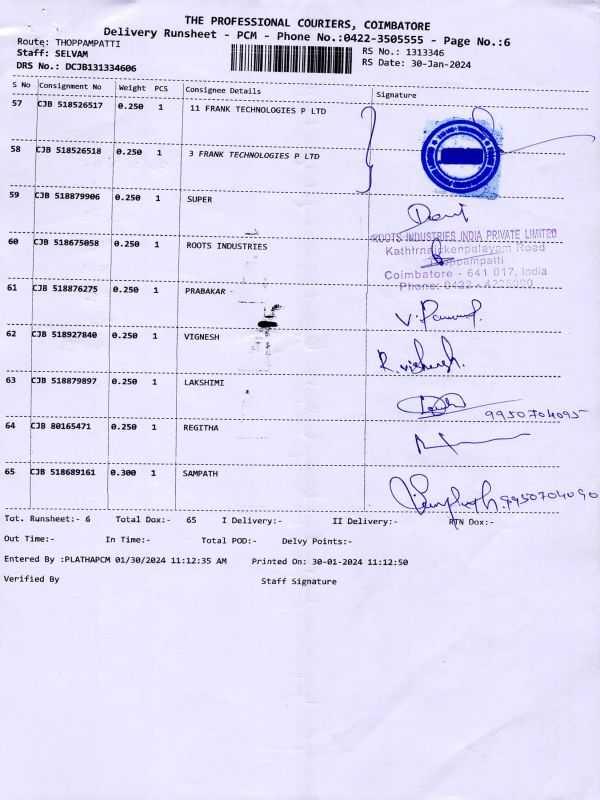 THE PROFESSIONAL COURIERS, COIMBATORE
Delivery Runsheet - PCM - Phone No.:0422-3505555 - Page No.:6
Route: THOPPAMPATTI RS No.: 1313346
Staff: SELVAM RS Date: 30-Jan-2024
DRS No.: DCJB131334606
S No Consignment No Weight PCS Consignee Details Signature
57 CJB 518526517 0.250 1 11 FRANK TECHNOLOGIES P LTD
58 CJB 518526518 0.250 1 3 FRANK TECHNOLOGIES P LTD
59 CJB 518879906 0.250 1 SUPER
60 CJB 518675058 0.250 1 ROOTS INDUSTRIES
ROOTS INDUSTRIES INDIA PRIVATE LIMITED
Kathirnaickenpalayam Road
Thoppampatti
Coimbatore - 641 017, India
Phone: 0422 - 4226000
61 CJB 518876275 0.250 1 PRABAKAR
62 CJB 518927840 0.250 1 VIGNESH R. Vighnesh.
63 CJB 518879897 0.250 1 LAKSHIMI 9950704095
64 CJB 80165471 0.250 1 REGITHA
65 CJB 518689161 0.300 1 SAMPATH 9950704090
Tot. Runsheet:- 6 Total Dox:- 65 I Delivery:- II Delivery:- RTN Dox:-
Out Time:- In Time:- Total POD:- Delvy Points:-
Entered By :PLATHAPCM 01/30/2024 11:12:35 AM Printed On: 30-01-2024 11:12:50
Verified By Staff Signature